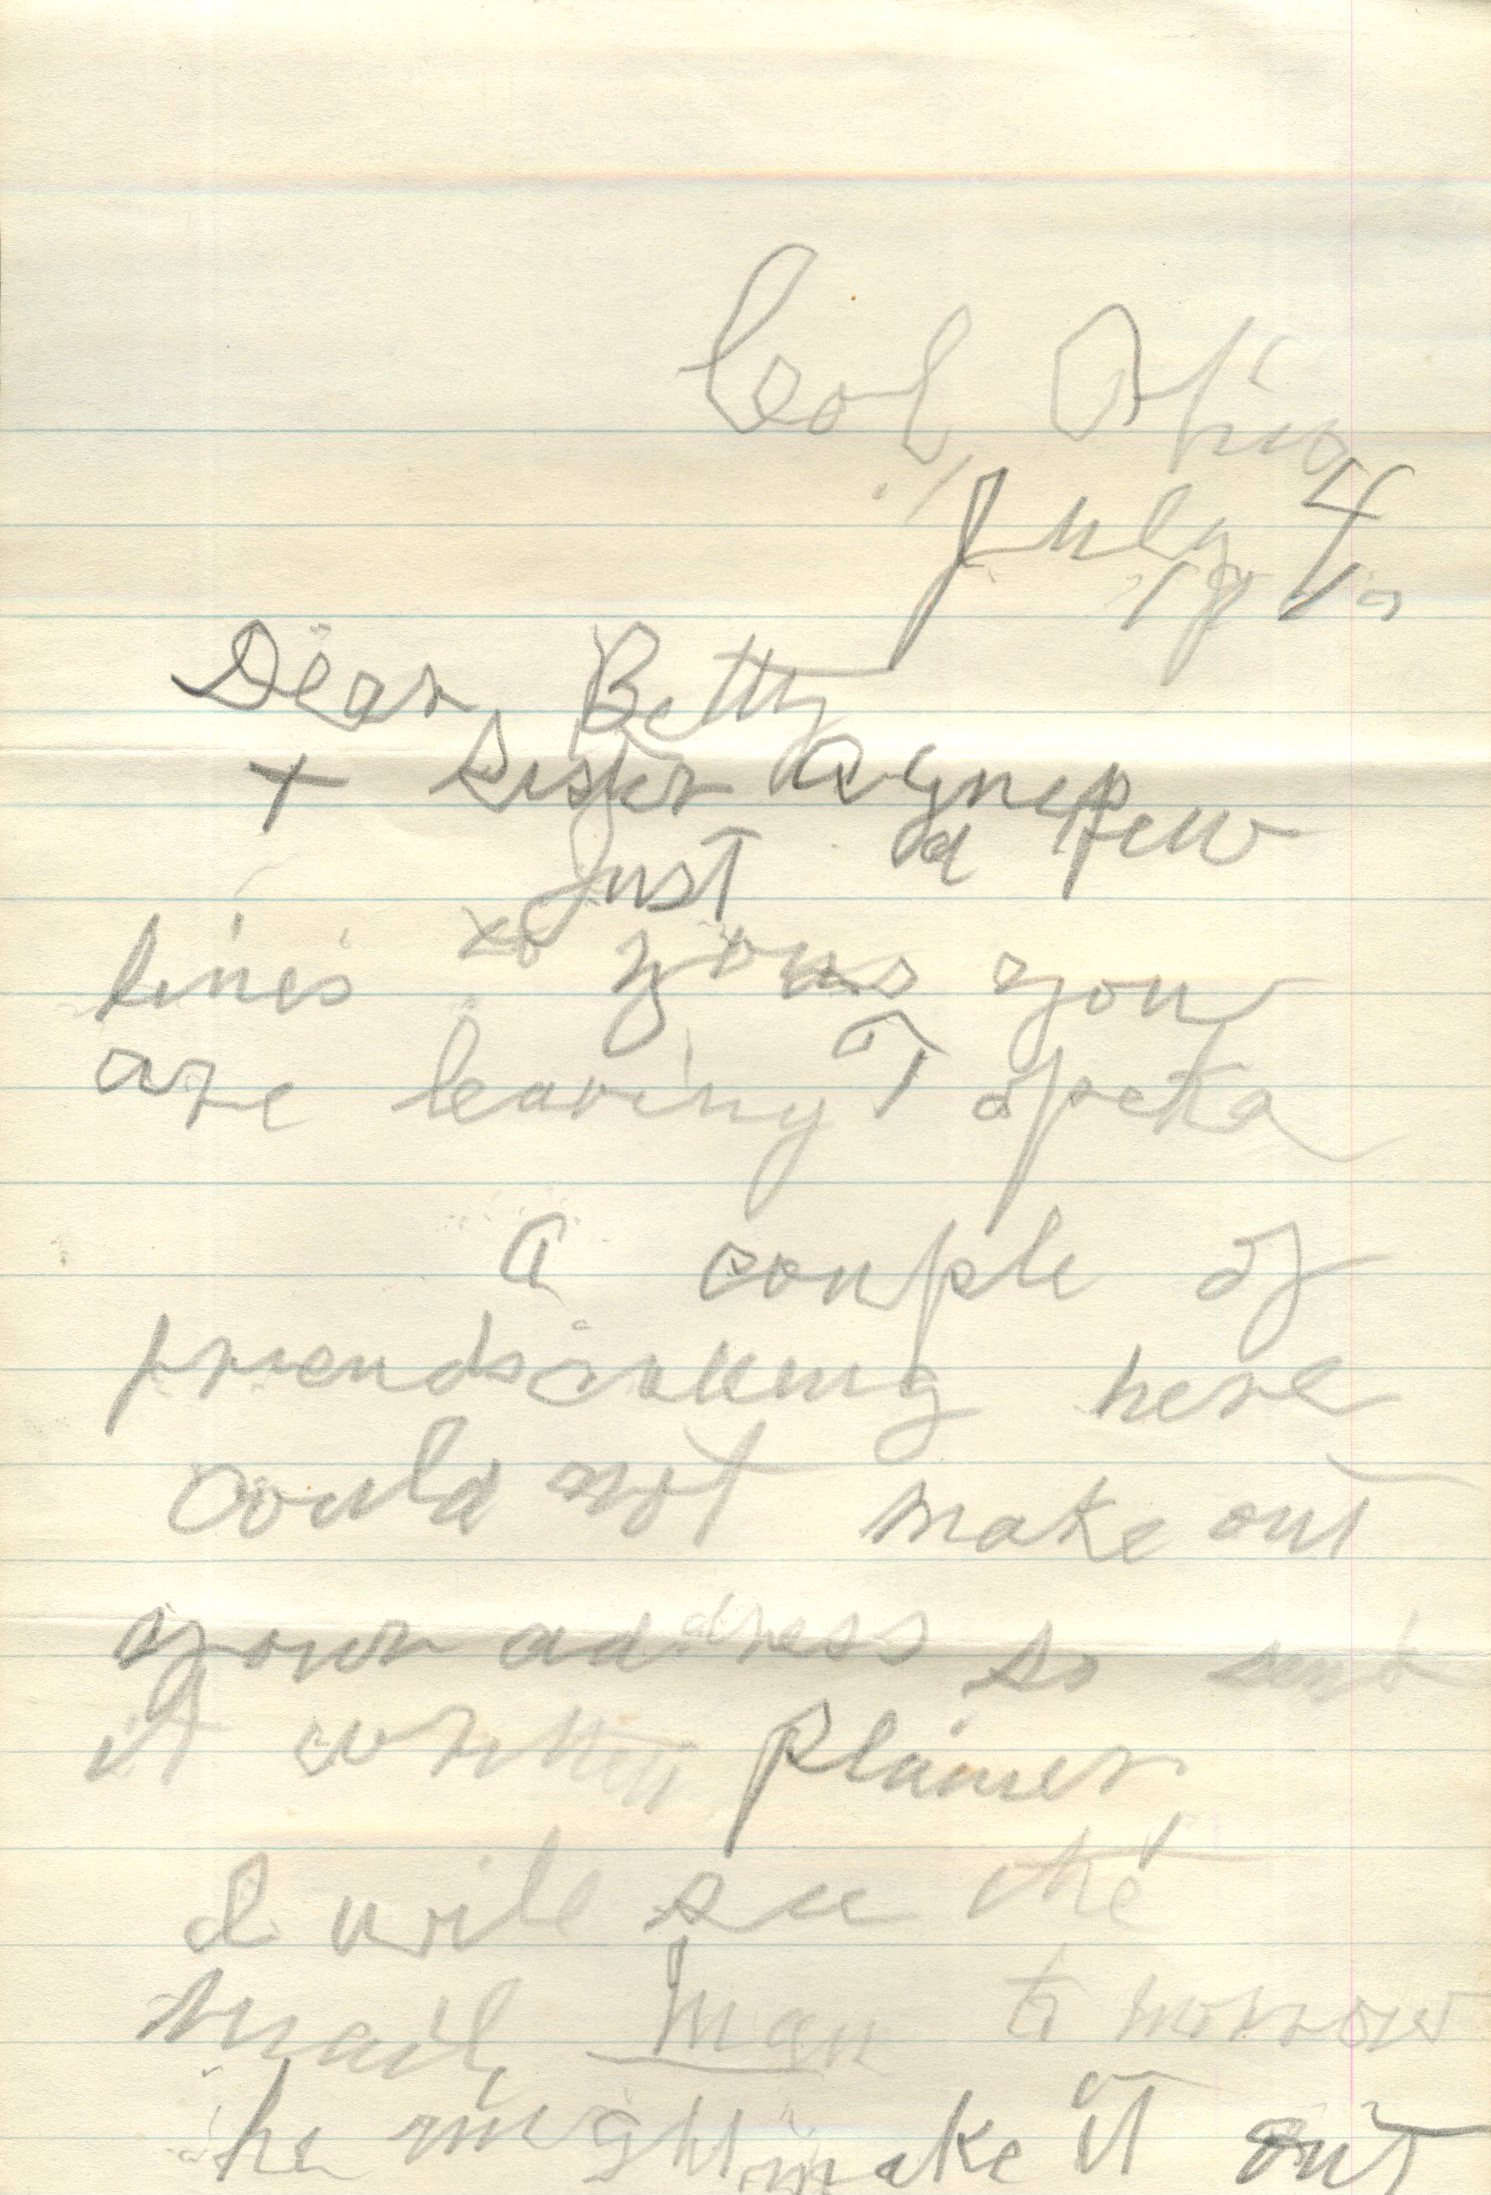 Col Ohio
July 4
19
Dear Betty
+ Sister Agnes
Just a few
lines to you
are leaving Topeka
A couple of
friends here
could not make out
your address so send
it written plainer
I will see the
mail man to morrow
he might make it out